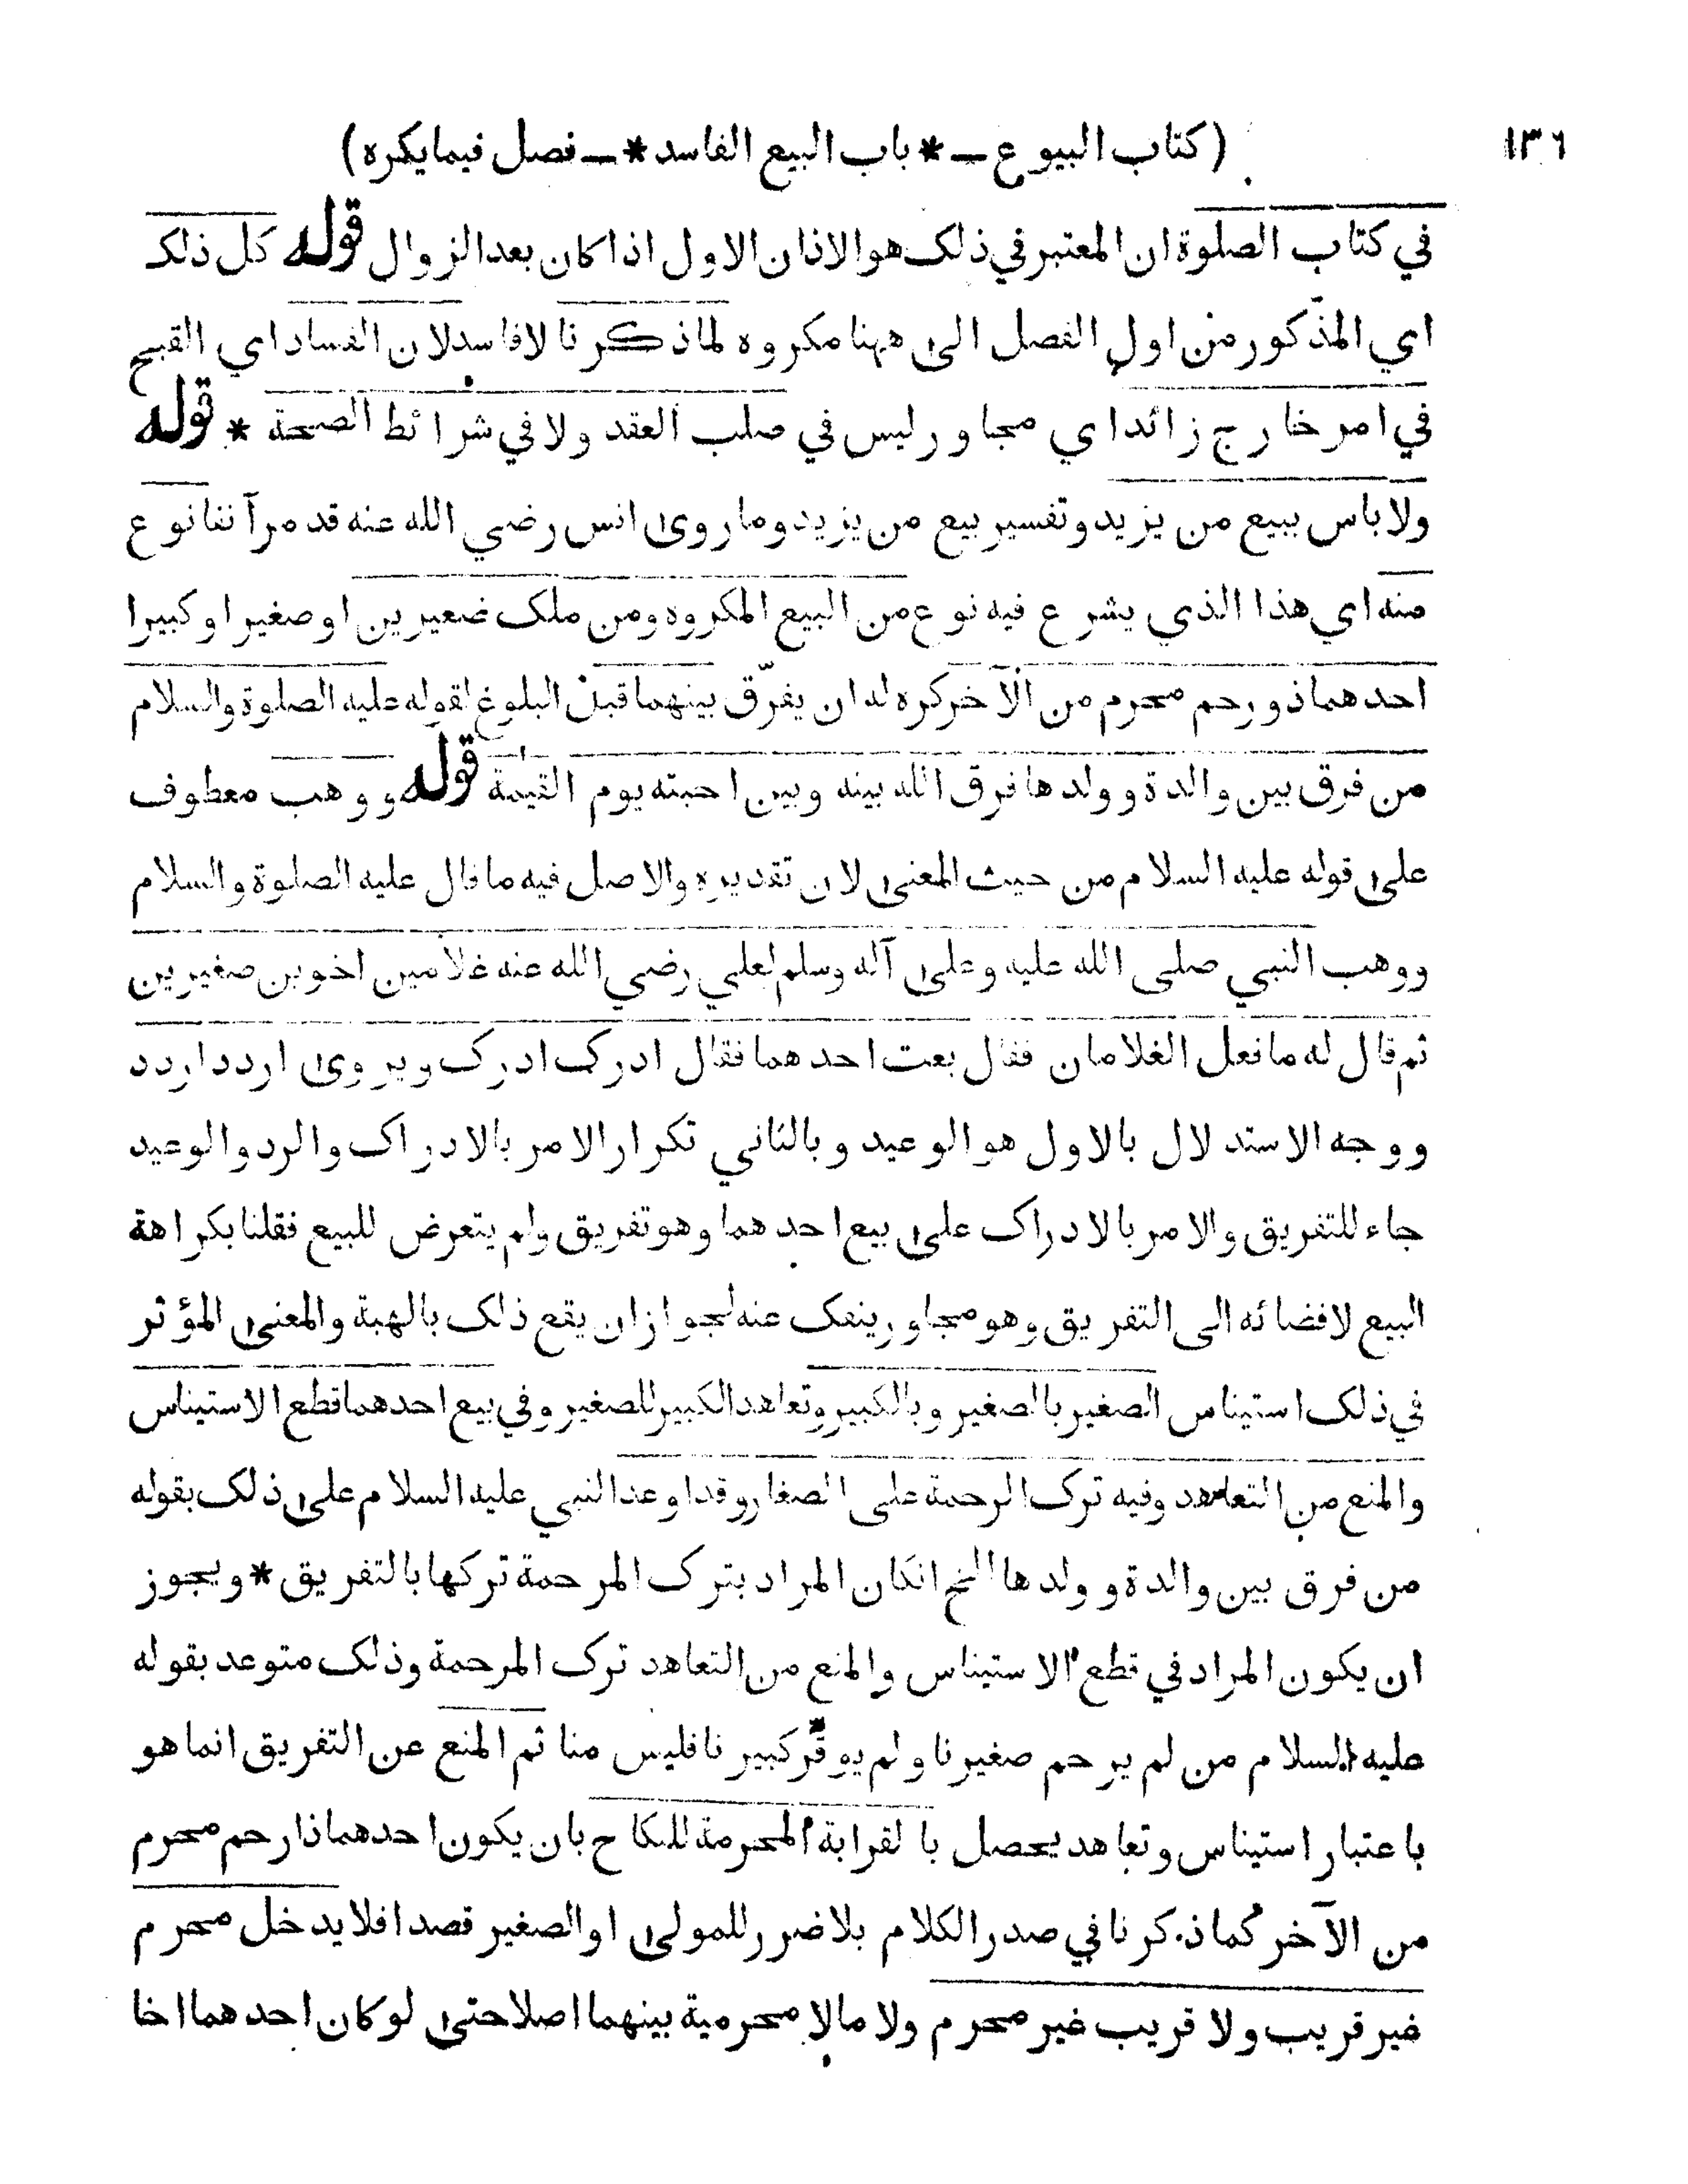 ١٣٦
(كتاب البيوع ـ * باب البيع الفاسد * ـ فصل فيما يكره)
في كتاب الصلوة ان المعتبر في ذلك هو الاذان الاول اذا كان بعد الزوال قوله كل ذلك
اي المذكور من اول الفصل الى ههنا مكروه لما ذكرنا لا فاسد لان الفساد اي القبح
في امر خارج زائد اي مجاور ليس في صلب العقد ولا في شرائط الصحة * قوله
ولا باس ببيع من يزيد وتفسير بيع من يزيد وما روى انس رضي الله عنه قد مر آنفا نوع
منه اي هذا الذي يشرع فيه نوع من البيع المكروه ومن ملك صغيرين او صغيرا وكبيرا
احدهما ذو رحم محرم من الآخر كره له ان يفرّق بينهما قبل البلوغ لقوله عليه الصلوة والسلام
من فرق بين والدة وولدها فرق الله بينه وبين احبته يوم القيمة قوله ووهب معطوف
على قوله عليه السلام من حيث المعنى لان تقديره والاصل فيه ما قال عليه الصلوة والسلام
ووهب النبي صلى الله عليه وعلى آله وسلم لعلي رضي الله عنه غلامين اخوين صغيرين
ثم قال له ما فعل الغلامان فقال بعت احدهما فقال ادرك ادرك ويروى اردد اردد
ووجه الاستدلال بالاول هو الوعيد وبالثاني تكرار الامر بالادراك والرد والوعيد
جاء للتفريق والامر بالادراك على بيع احدهما وهو تفريق ولم يتعرض للبيع فقلنا بكراهة
البيع لافضائه الى التفريق وهو مجاور ينفك عنه لجواز ان يقع ذلك بالهبة والمعنى المؤثر
في ذلك استيناس الصغير بالصغير وبالكبير وتعاهد الكبير للصغير وفي بيع احدهما قطع الاستيناس
والمنع من التعاهد وفيه ترك الرحمة على الصغار وقد اوعد النبي عليه السلام على ذلك بقوله
من فرق بين والدة وولدها الخ انكان المراد بترك المرحمة تركها بالتفريق * ويجوز
ان يكون المراد في قطع الاستيناس والمنع من التعاهد ترك المرحمة وذلك متوعد بقوله
عليه السلام من لم يرحم صغيرنا ولم يوقّر كبيرنا فليس منا ثم المنع عن التفريق انما هو
باعتبار استيناس وتعاهد يحصل بالقرابة المحرمة للنكاح بان يكون احدهما ذا رحم محرم
من الآخر كما ذكرنا في صدر الكلام بلا ضرر للمولى او الصغير قصدا فلا يدخل محرم
غير قريب ولا قريب غير محرم ولا مالا محرمية بينهما اصلا حتى لو كان احدهما اخا